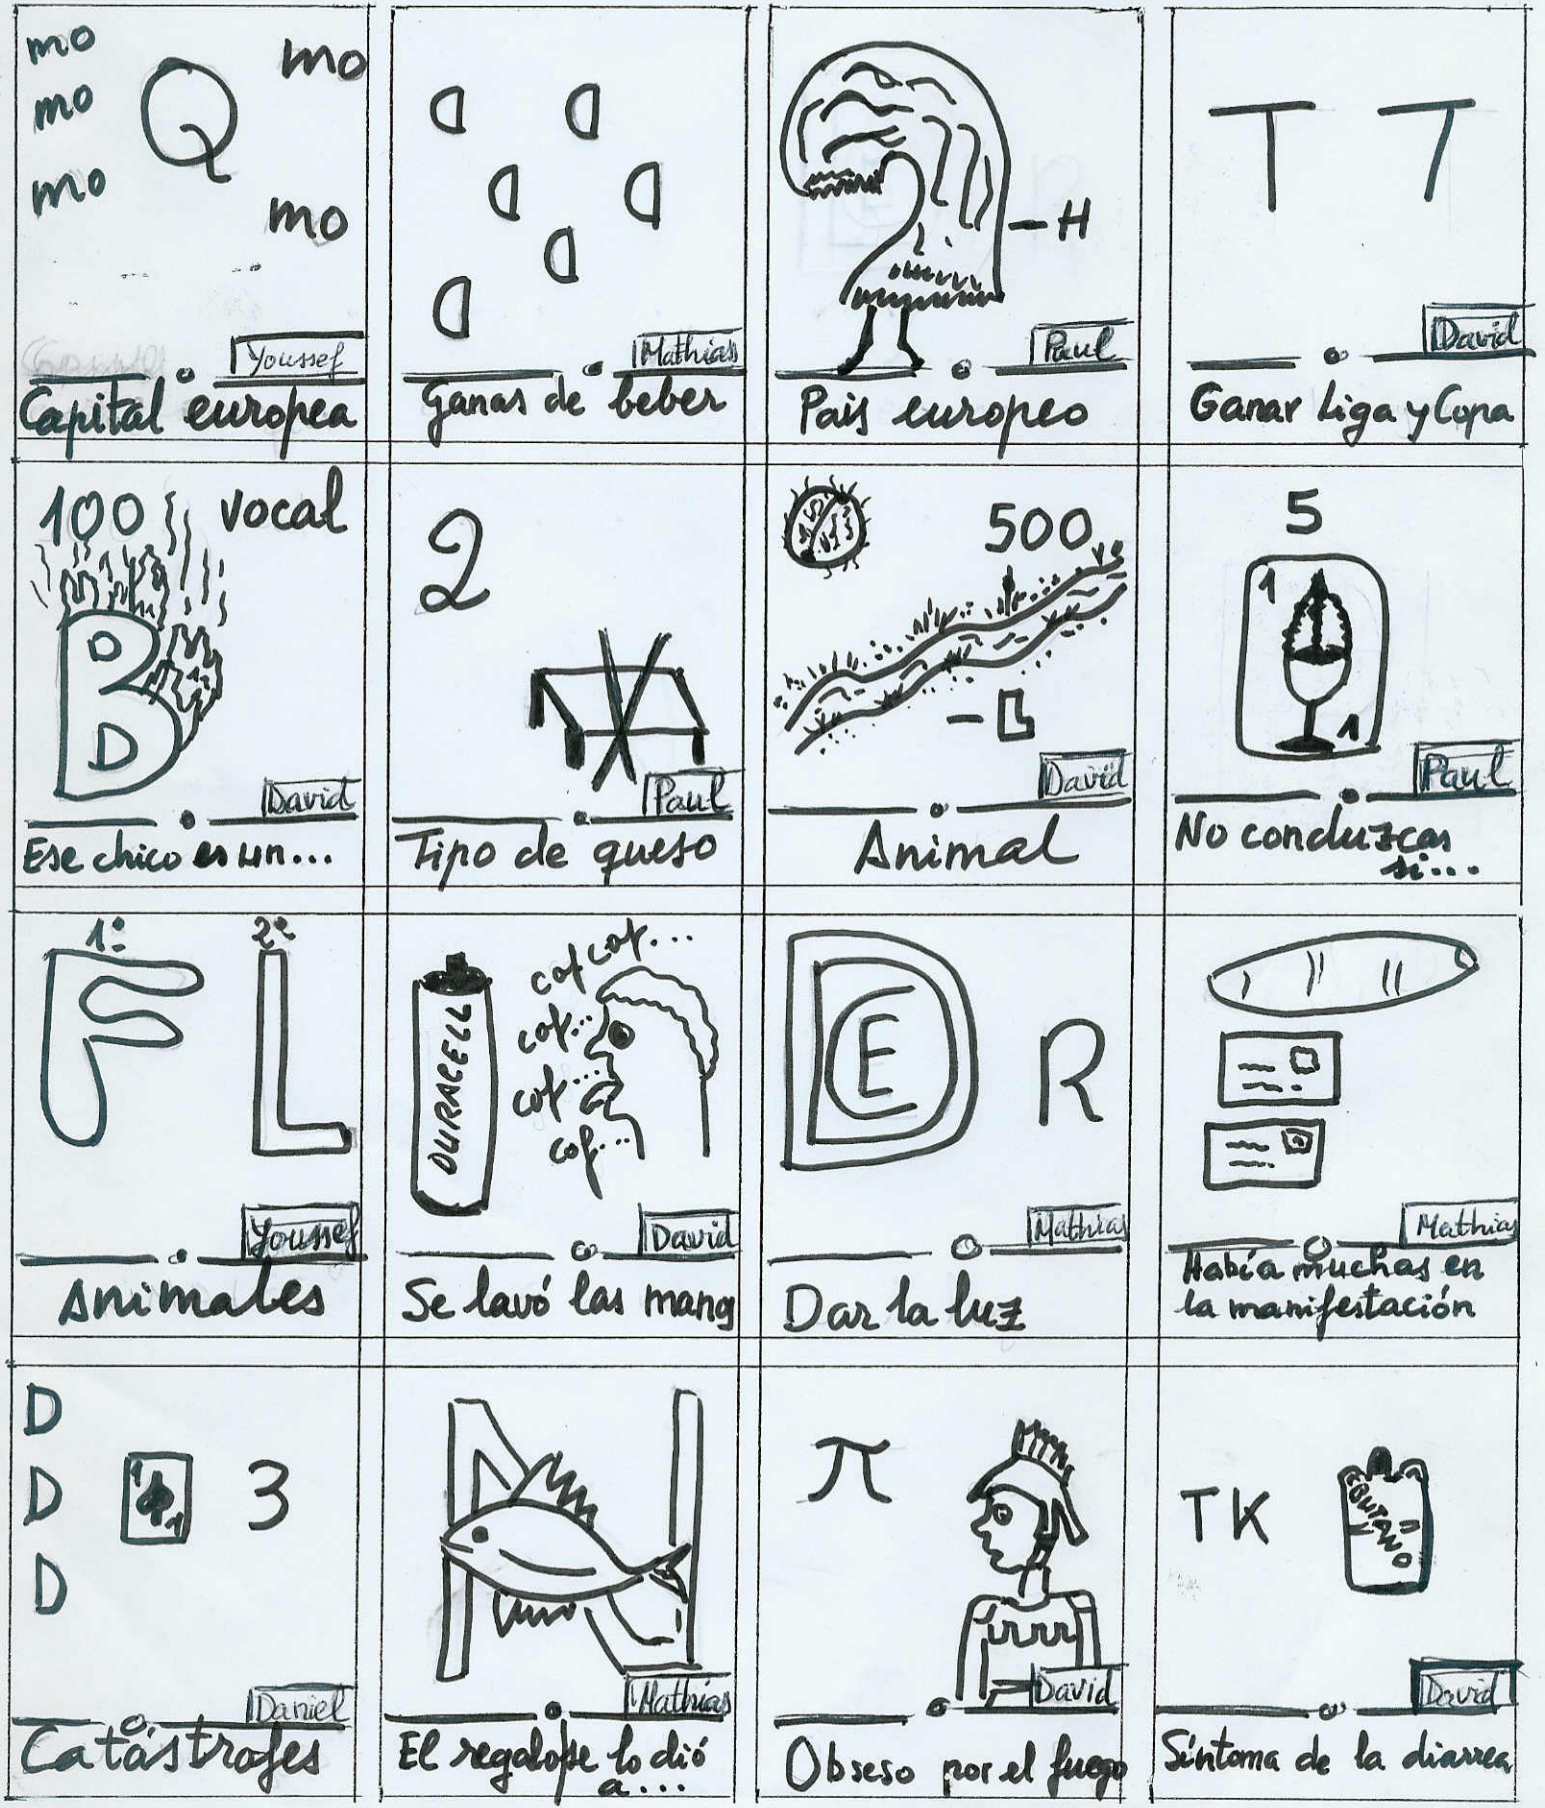 mo
mo
mo
Q
mo
mo
Youssef
Capital europea
D D
D D
D
D
Mathias
Ganas de beber
- H
Paul
País europeo
T T
David
Ganar Liga y Copa
100 vocal
B
David
Ese chico es un...
2
Paul
Tipo de queso
500
- L
David
Animal
5
1
1
Paul
No conduzcas
si...
1º 2º
F L
Youssef
Animales
DURACELL
cof cof...
cof...
cof...
cof...
David
Se lavó las manos
D
E
R
Mathias
Dar la luz
Mathias
Había muchas en
la manifestación
D
D
D
1
1
3
Daniel
Catástrofes
N
Mathias
El regalo se lo dió
a...
π
David
Obseso por el fuego
TK
BUTANO
David
Síntoma de la diarrea